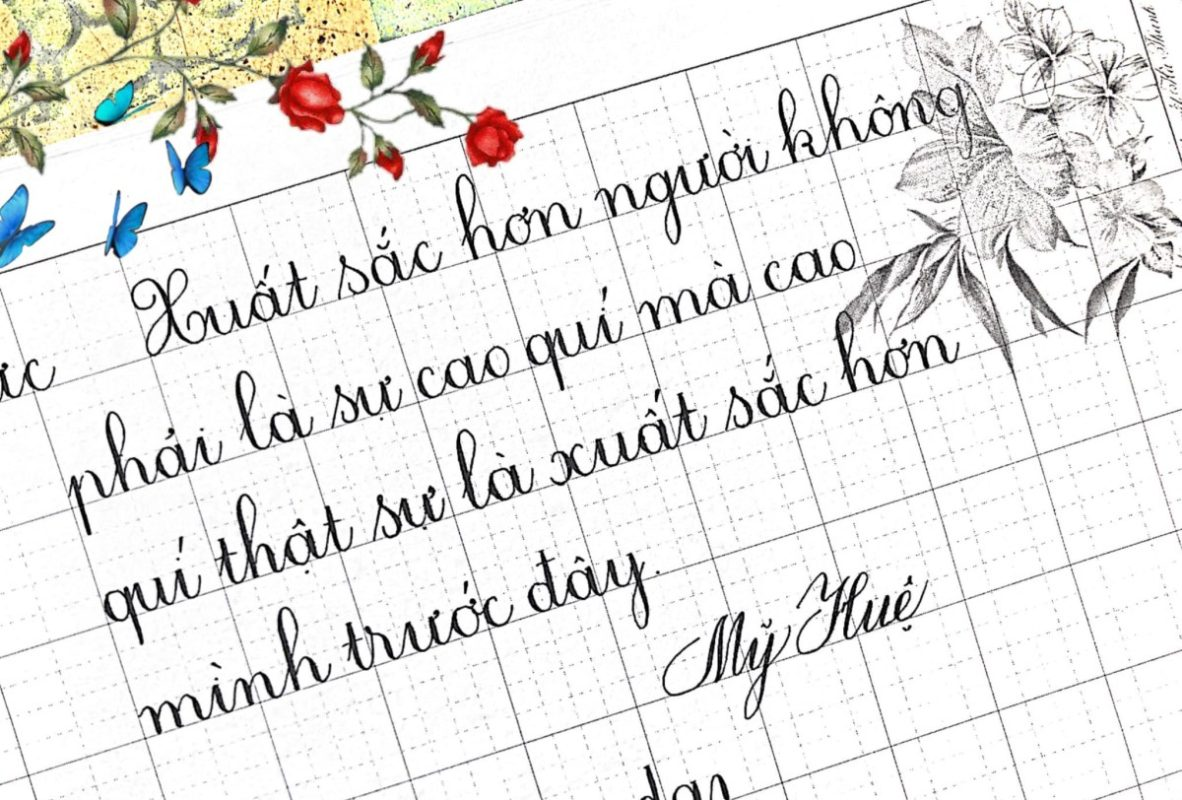 Xuất sắc hơn người không
phải là sự cao quí mà cao
quí thật sự là xuất sắc hơn
mình trước đây.
Mỹ Huệ